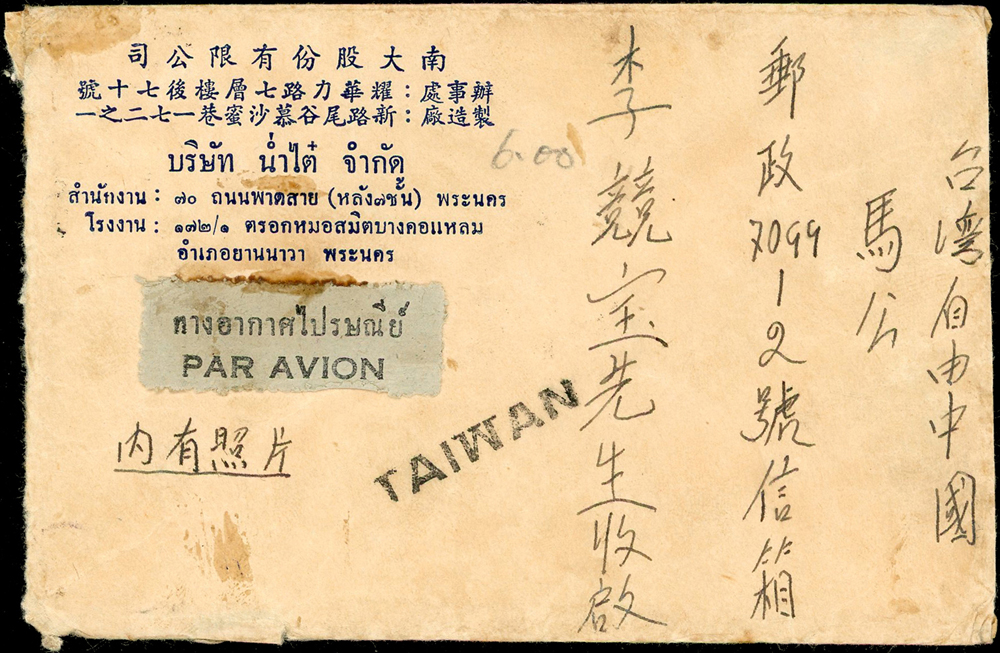 南大股份有限公司
辦事處：耀華力路七層樓後七十號
製造廠：新路尾谷慕沙蜜巷一七二之一
บริษัท น่ำไต๋ จำกัด
สำนักงาน : ๗๐ ถนนพาดสาย (หลัง๗ชั้น) พระนคร
โรงงาน : ๑๗๒/๑ ตรอกหมอสมิตบางคอแหลม
อำเภอยานนาวา พระนคร
6.00
ทางอากาศไปรษณีย์
PAR AVION
TAIWAN
内有照片
台湾自由中國
馬公
郵政7099-2號信箱
李競宝先生收啟